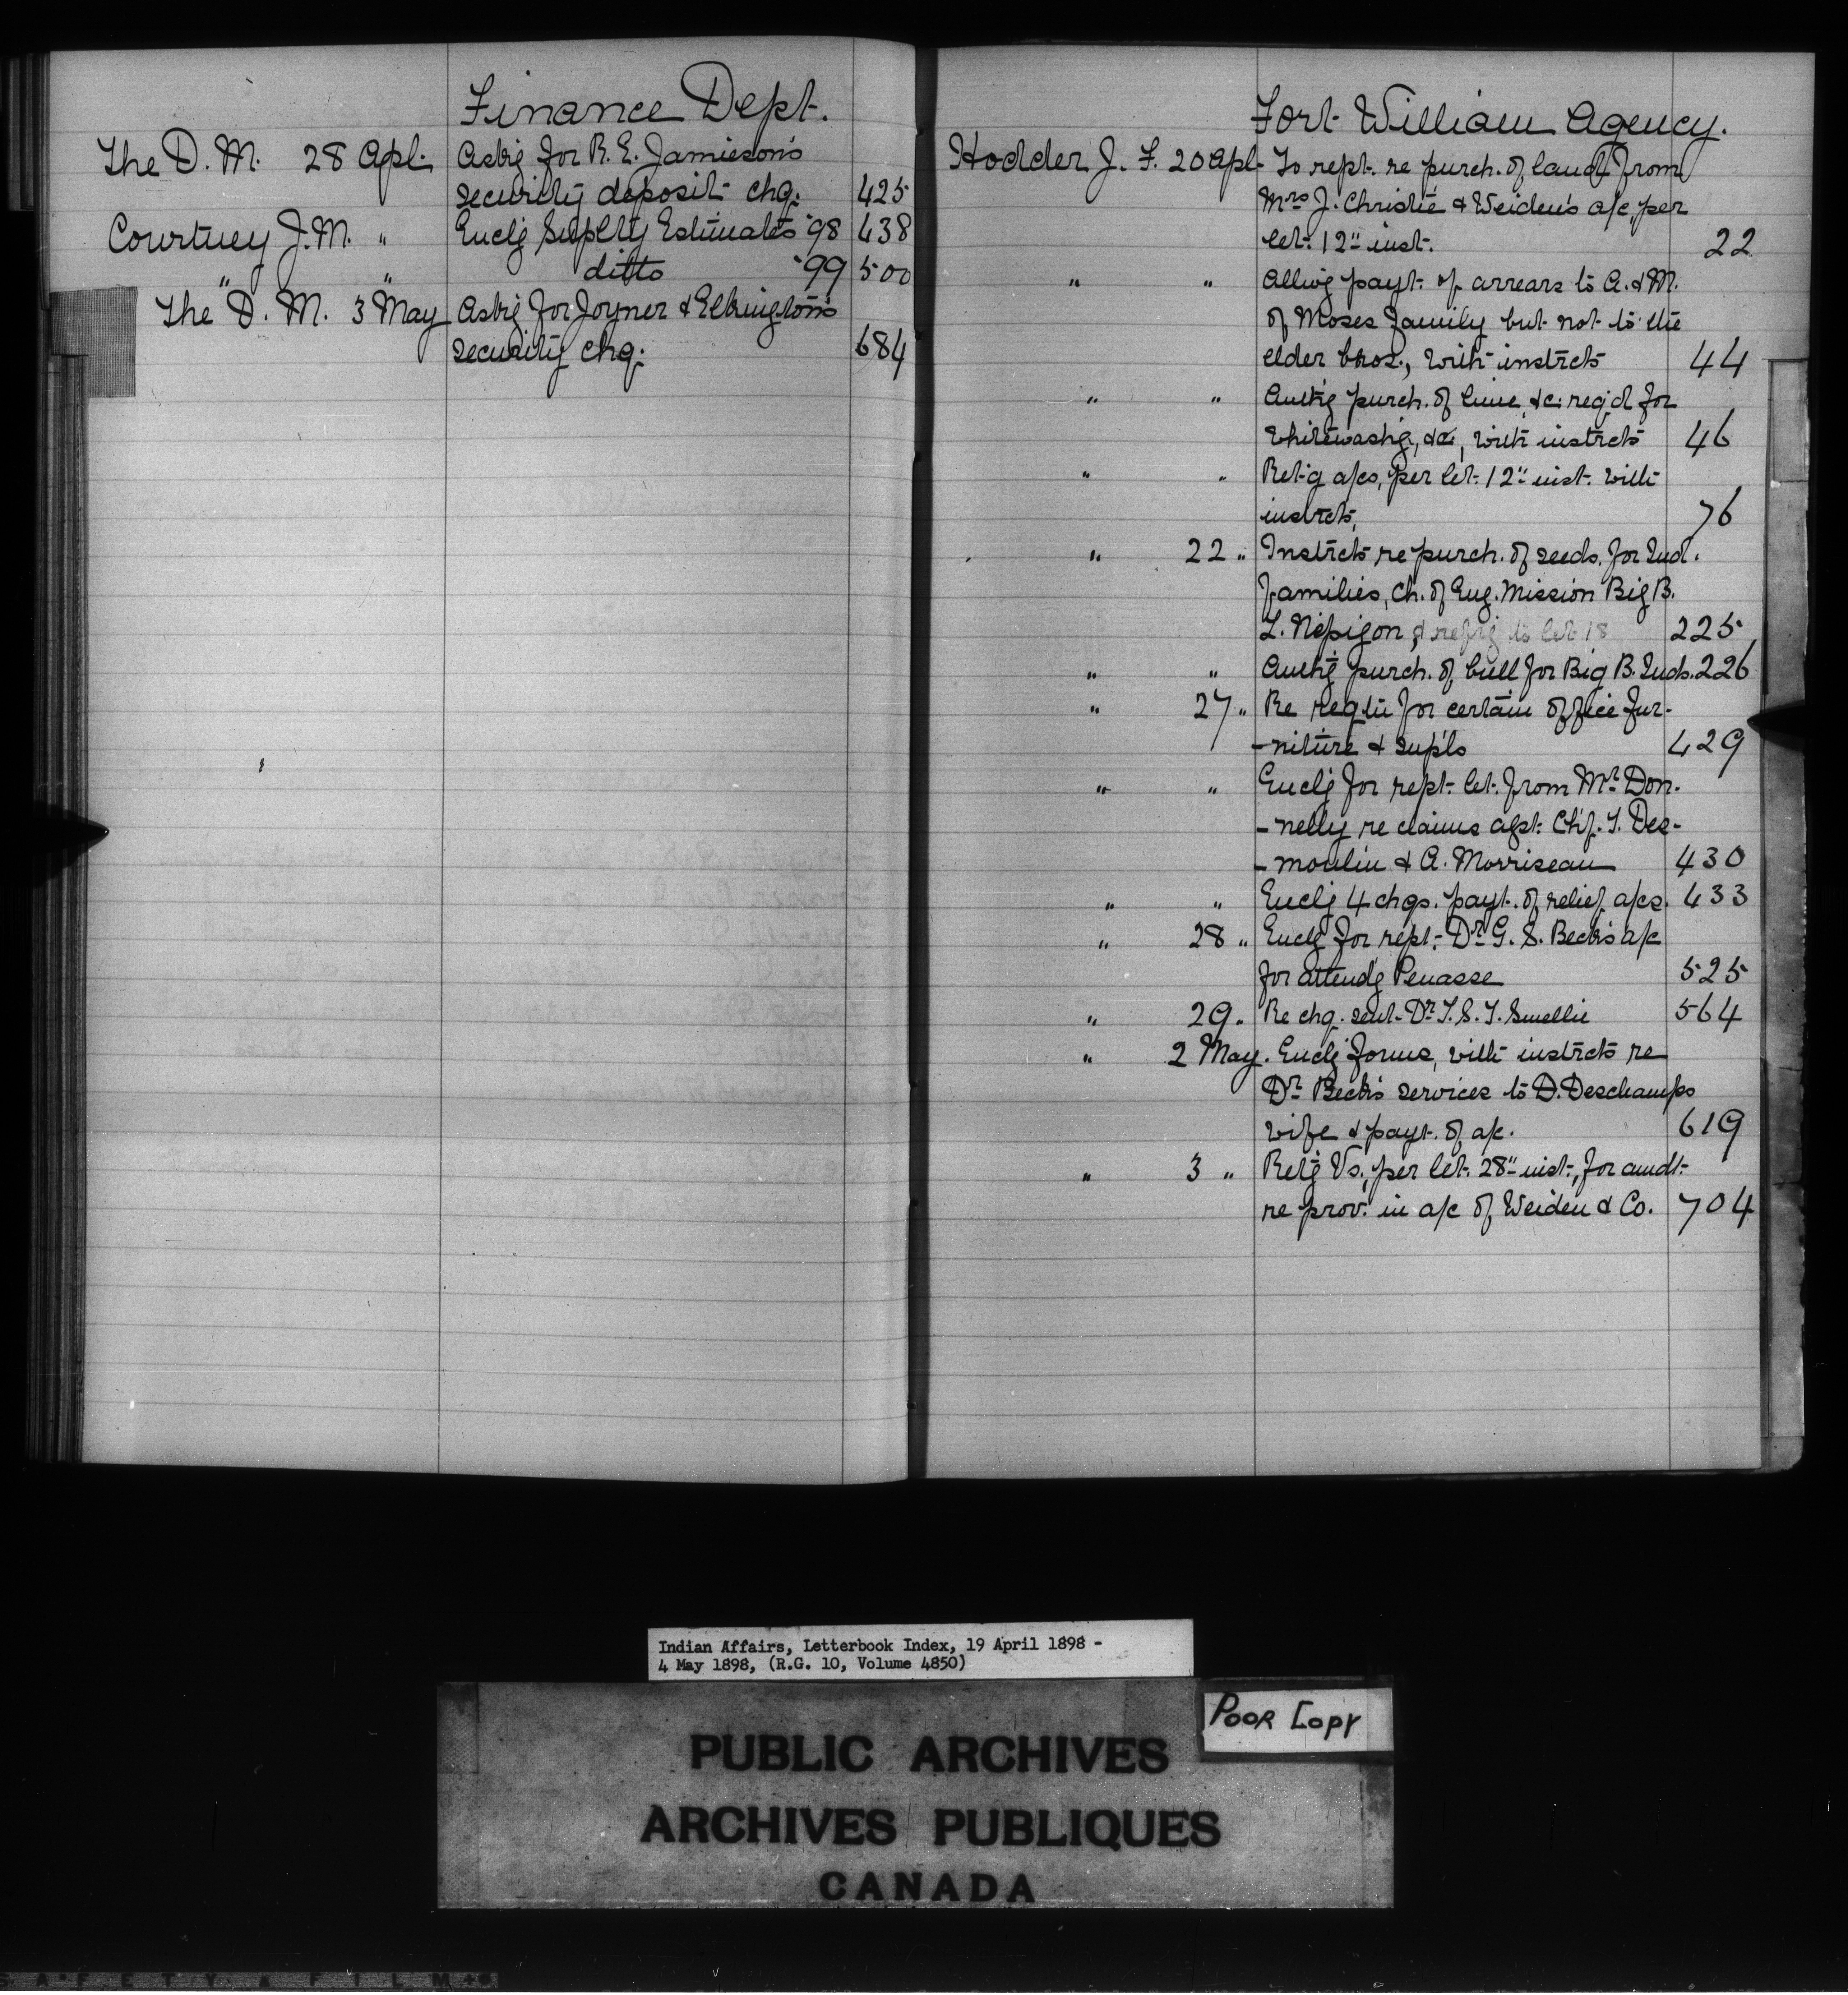 Finance Dept.
The D. M. 28 Apl. Askg for R. E. Jamieson's
security deposit chq. 425
Courtney J. M. " Enclg Supply Estimates '98 438
" " ditto '99 500
The D. M. 3 May Askg for Joyner & Elkington's
security chq. 684
Fort William Agency.
Hodder J. F. 20 Apl. To rept. re purch. of land from
Mrs J. Christie & Weiden's a/c, per
let. 12" inst. 22
" " Allwg payt. of arrears to A. & M.
of Moses family but not to the
elder bros., with instrcts 44
" " Authg purch. of lime, &c. req'd for
whitewashg, &c, with instrcts 46
" " Ret-g a/cs, per let. 12" inst. with
instrcts, 76
" 22 " Instrcts re purch. of seeds for Ind.
families, Ch. of Eng. Mission Big B.
L. Nepigon, & refrg to let 18 225
" " Authg purch. of bull for Big B. Inds. 226
" 27 " Re reqtn for certain office fur-
-niture & supls 429
" " Enclg for rept. let. from Mr. Don-
-nelly re claims agst. Chf. T. Des-
-moulin & A. Morriseau 430
" " Enclg 4 chqs. payt. of relief a/cs. 433
" 28 " Enclg for rept. Dr. G. S. Beck's a/c
for attendg Penasse 525
" 29 " Re chq. sent Dr. T. S. T. Smellie 564
" 2 May. Enclg forms, with instrcts re
Dr. Beck's services to D. Deschamps
wife & payt. of a/c. 619
" 3 " Retg Vs., per let. 28" inst., for amdt.
re prov. in a/c of Weiden & Co. 704
Indian Affairs, Letterbook Index, 19 April 1898 -
4 May 1898, (R.G. 10, Volume 4850)
POOR COPY
PUBLIC ARCHIVES
ARCHIVES PUBLIQUES
CANADA
SAFETY FILM